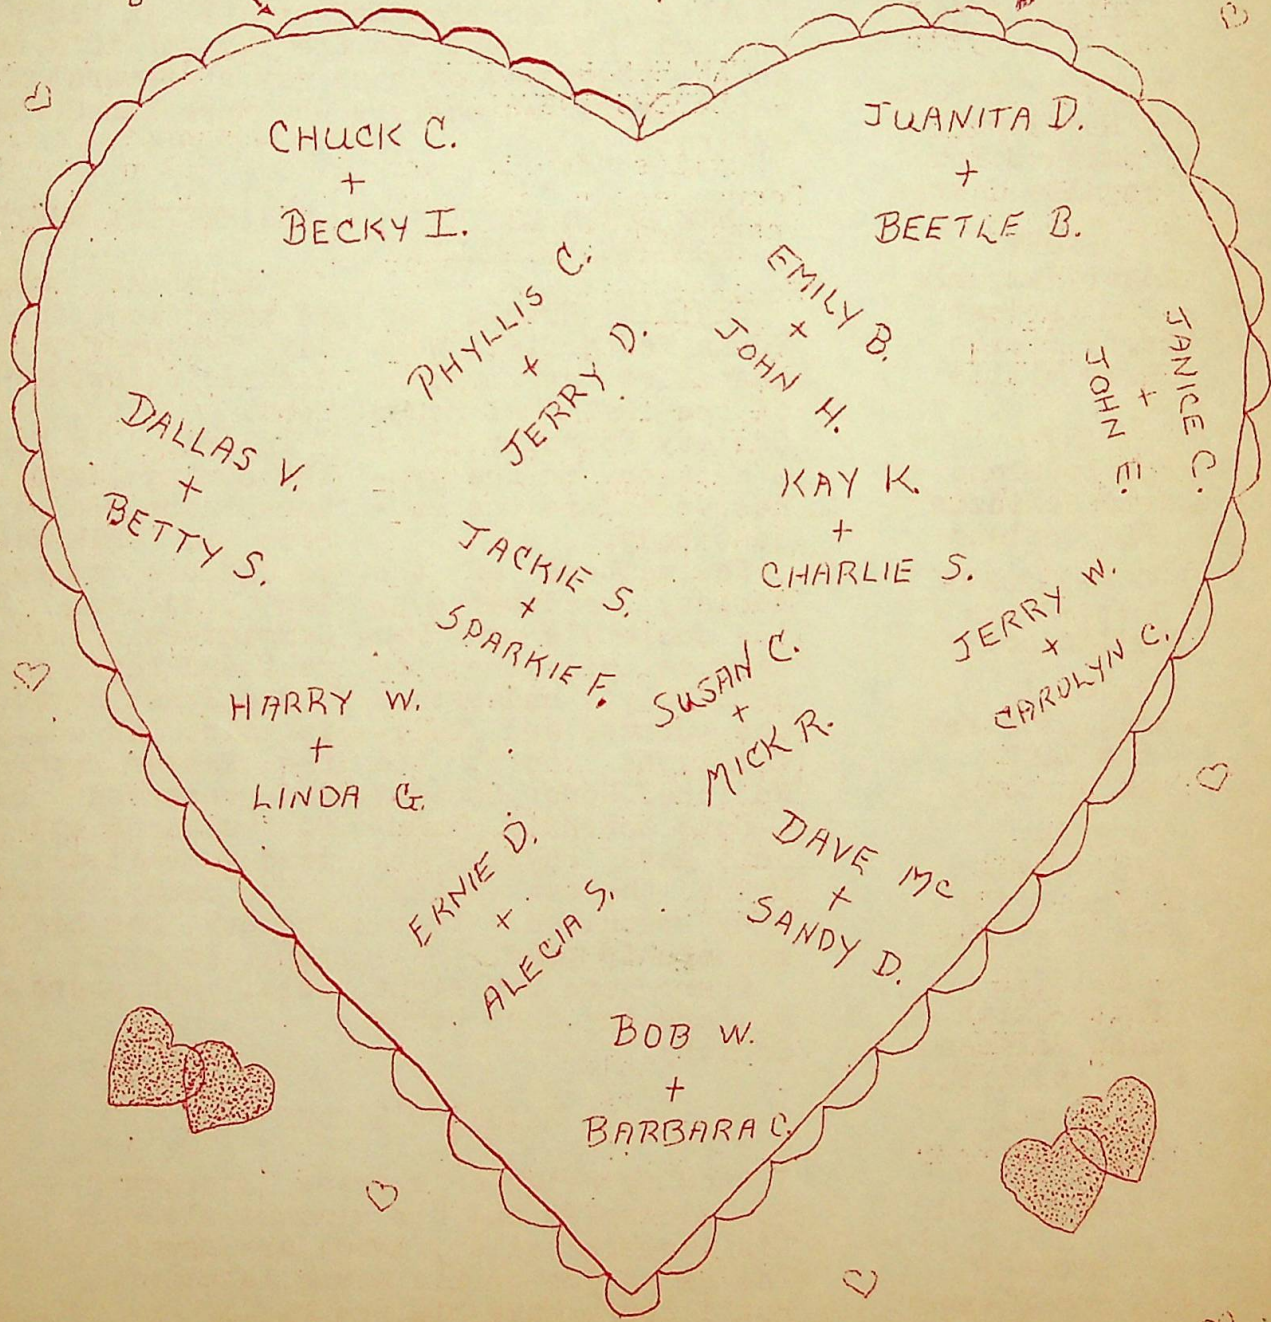 CHUCK C.
+
BECKY I.
JUANITA D.
+
BEETLE B.
PHYLLIS C.
+
JERRY D.
EMILY B.
+
JOHN H.
JANICE C.
+
JOHN E.
DALLAS V.
+
BETTY S.
KAY K.
+
CHARLIE S.
JACKIE S.
+
SPARKIE F.
JERRY W.
+
CAROLYN C.
SUSAN C.
+
MICK R.
HARRY W.
+
LINDA G.
DAVE MC
+
SANDY D.
ERNIE D.
+
ALECIA S.
BOB W.
+
BARBARA C.